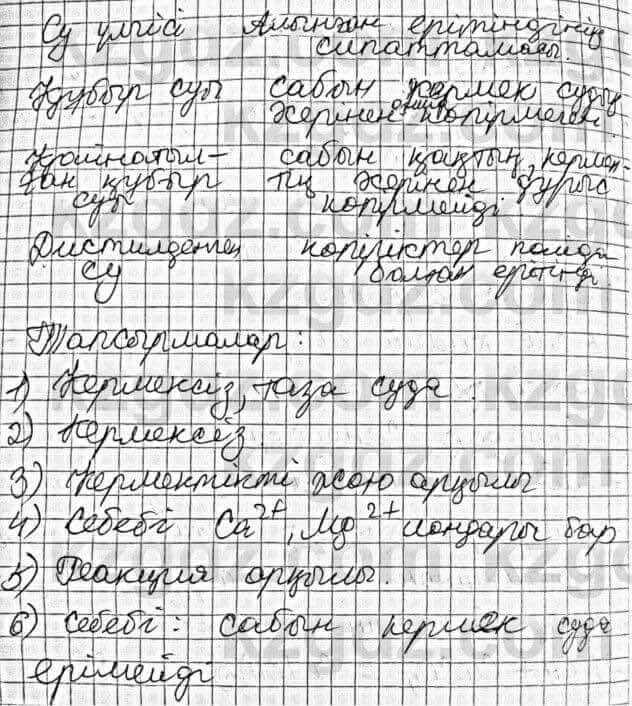 Су үлгісі Алынған ерітіндінің
сипаттамасы.
Құбыр суы сабын кермек судың
әсерінен көпірмеген
Қайнатыл- сабын қақтың, кермек-
ған құбыр тің әсерінен дұрыс
суы көпірмейді
Дистилденген көпіріктер пайда
су болған ерітінді
Тапсырмалар:
1) Кермексіз, таза суда
2) Кермексіз
3) Кермектікті жою арқылы
4) Себебі Ca²⁺, Mg²⁺ иондары бар
5) Реакция арқылы.
6) Себебі: сабын кермек суда
ерімейді